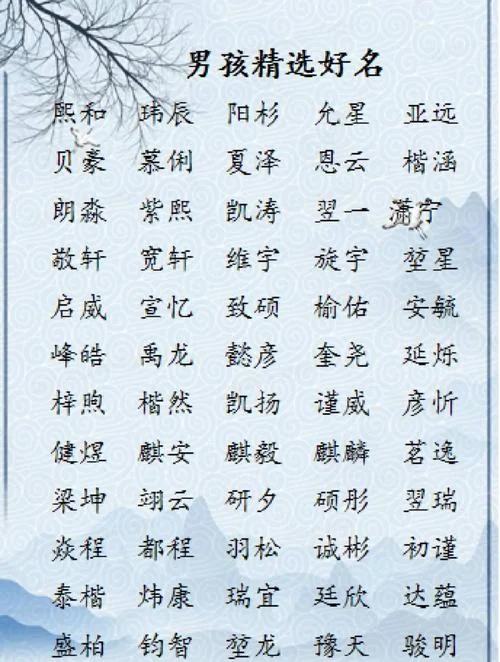 男孩精选好名
熙和 玮辰 阳杉 允星 亚远
贝豪 慕俐 夏泽 恩云 楷涵
朗淼 紫熙 凯涛 翌一 潇宁
敬轩 宽轩 维宇 旋宇 堃星
启威 宣忆 致硕 榆佑 安毓
峰皓 禹龙 懿彦 奎尧 延烁
梓煦 楷然 凯扬 谨威 彦忻
健煜 麒安 麒毅 麒麟 茗逸
梁坤 翊云 研夕 硕彤 翌瑞
焱程 都程 羽松 诚彬 初谨
泰楷 炜康 瑞宜 廷欣 达蕴
盛柏 钧智 堃龙 豫天 骏明